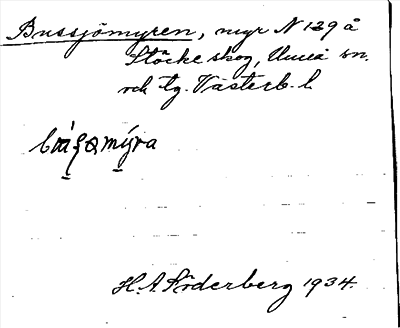 Bussjömyren, myr N 129 å
Stöcke skog, Umeå sn.
och tg. Västerb. l.
H. A. Söderberg 1934.